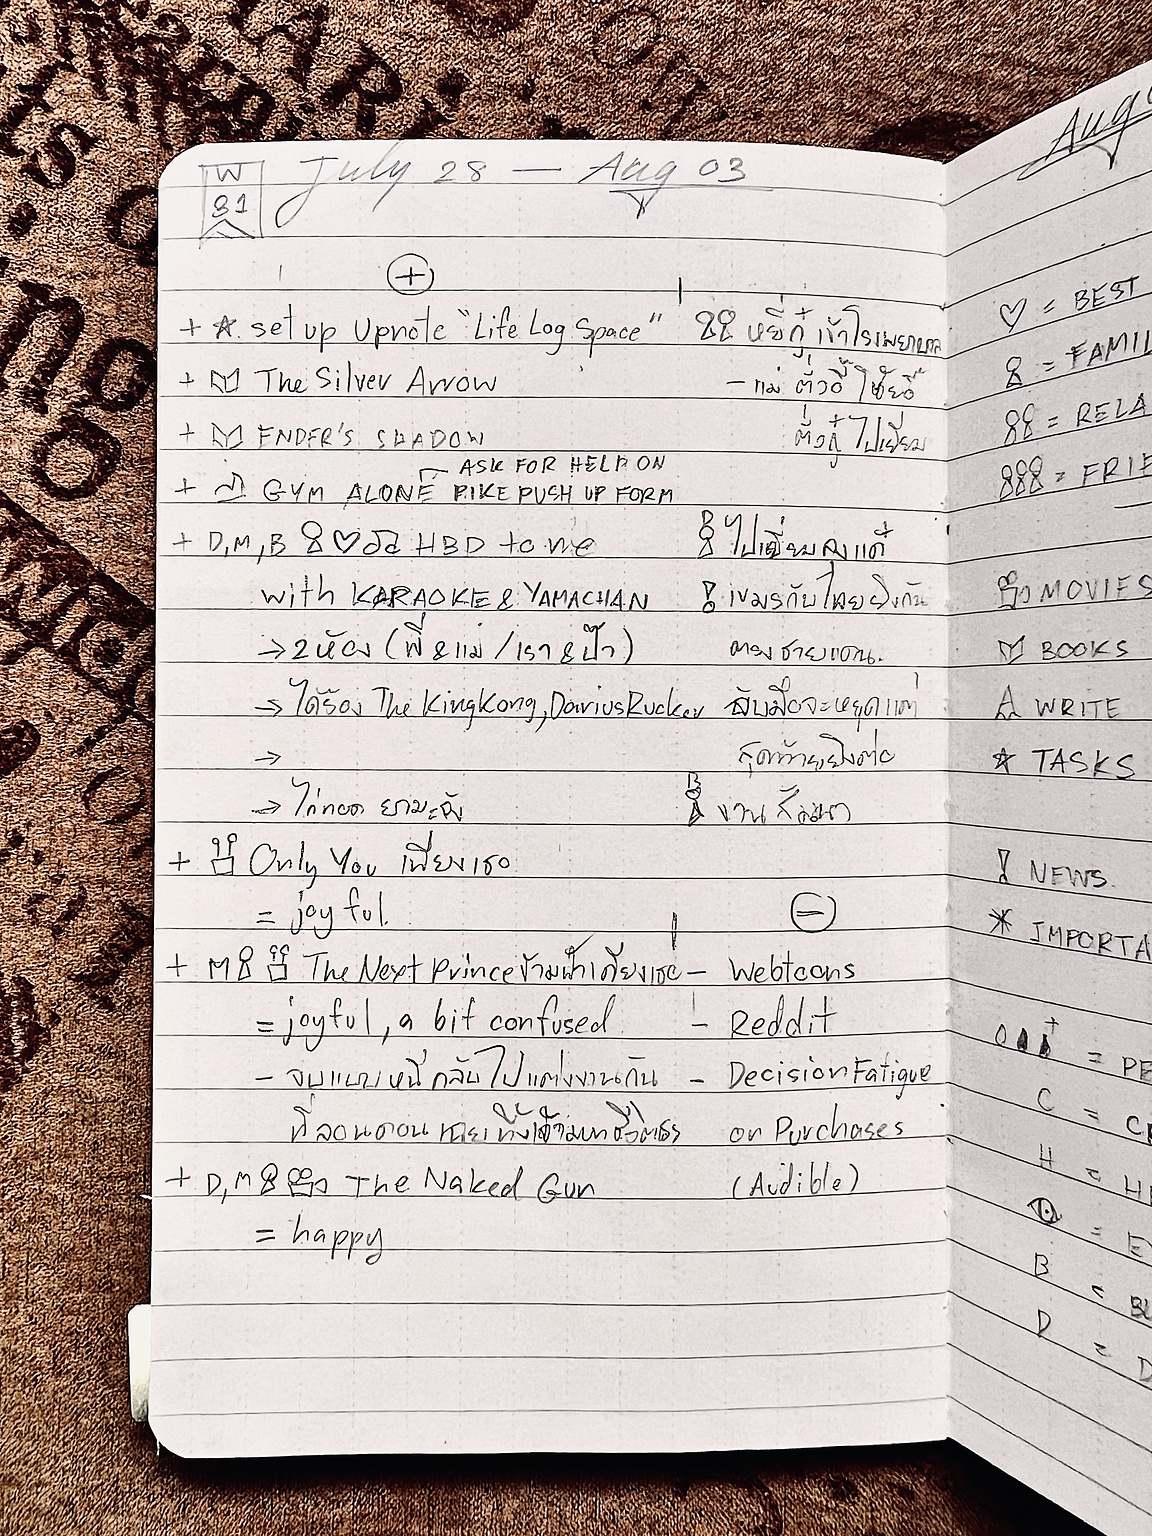 W 31 July 28 — Aug 03
+
+ ☆ set up Upnote "Life Log Space"
+ The Silver Arrow
+ ENDER'S SHADOW
ASK FOR HELP ON
+ GYM ALONE PIKE PUSH UP FORM
+ D, M, B ♡ HBD to me
with KARAOKE & YAMACHAN
→ 2 ห้อง (พี่ & แม่ / เรา & ป๊า)
→ ได้ร้อง The KingKong, Darius Rucker
→
→ ไก่ทอด ยามะจัง
+ Only You เพียงเธอ
= joyful.
+ M The Next Prince ข้ามฟ้าเคียงเธอ
= joyful, a bit confused
- จบแบบหนีกลับไปแต่งงานกัน
ที่ลอนดอน
+ D, M The Naked Gun
= happy
หยี่กู๋ เข้าโรงพยาบาล
- แม่ ตั่วอี๊
ตั่วกู๋ ไปเยี่ยม
B ไปเยี่ยม
! เขมรกับไทยยิงกัน
ตรงชายแดน.
จะหยุดแต่
สุดท้ายยิงต่อ
B งาน
−
- Webtoons
- Reddit
- Decision Fatigue
on Purchases
(Audible)
Aug
♡ = BEST
= FAMIL
= RELA
= FRIE
MOVIES
BOOKS
WRITE
☆ TASKS
! NEWS.
* IMPORTA
+ = PE
C = C
H = H
= E
B = BL
D = D